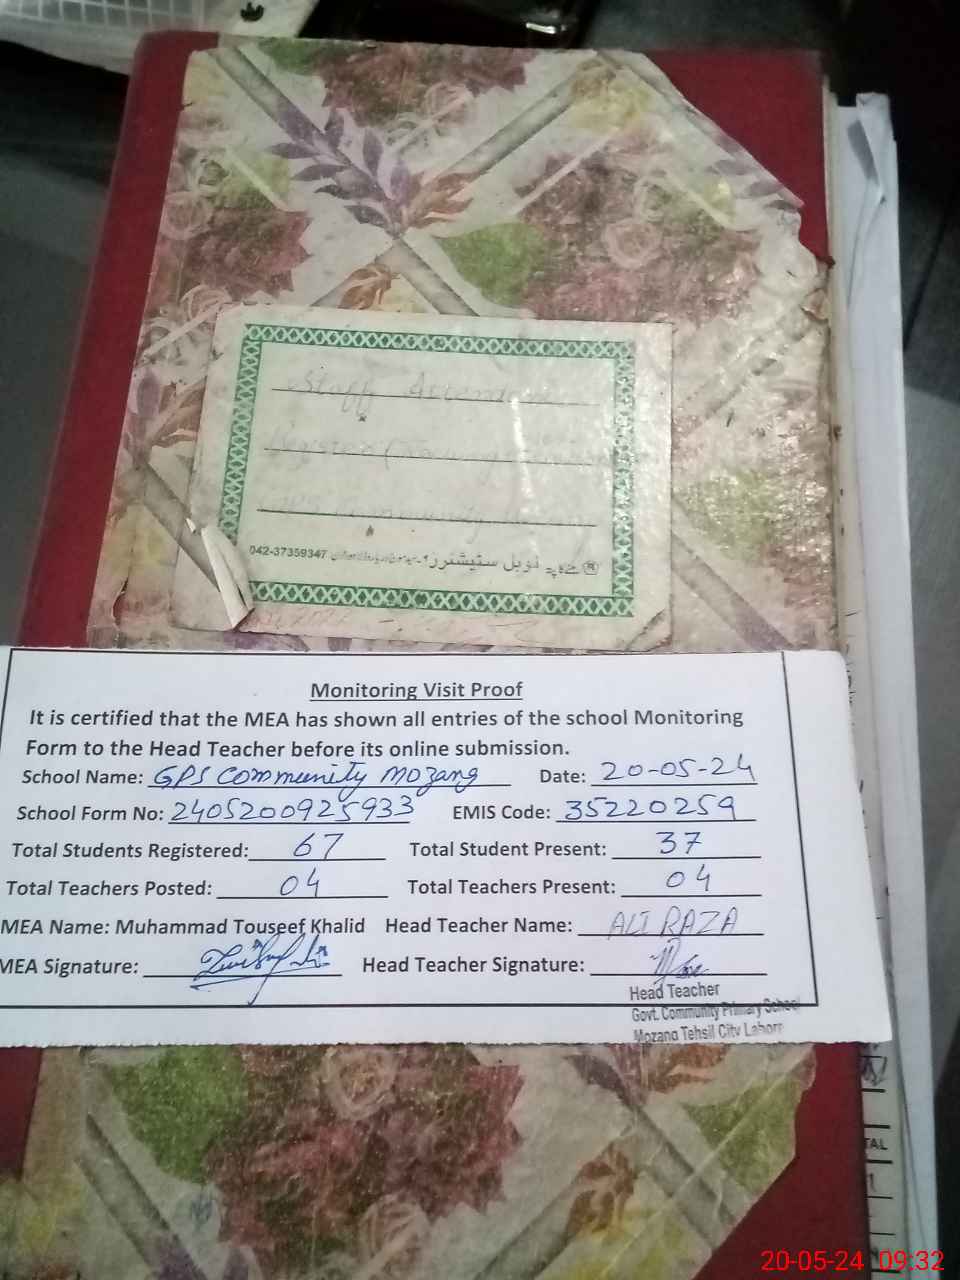 Staff Attendance
Register (
GPS Community Mozang
042-37359347
نوبل سٹیشنرز
Monitoring Visit Proof
It is certified that the MEA has shown all entries of the school Monitoring
Form to the Head Teacher before its online submission.
School Name: GPS Community Mozang Date: 20-05-24
School Form No: 2405200925933 EMIS Code: 35220259
Total Students Registered: 67 Total Student Present: 37
Total Teachers Posted: 04 Total Teachers Present: 04
MEA Name: Muhammad Touseef Khalid Head Teacher Name: ALI RAZA
MEA Signature: Head Teacher Signature:
Head Teacher
Govt. Community Primary School
Mozang Tehsil City Lahore
TAL
20-05-24 09:32